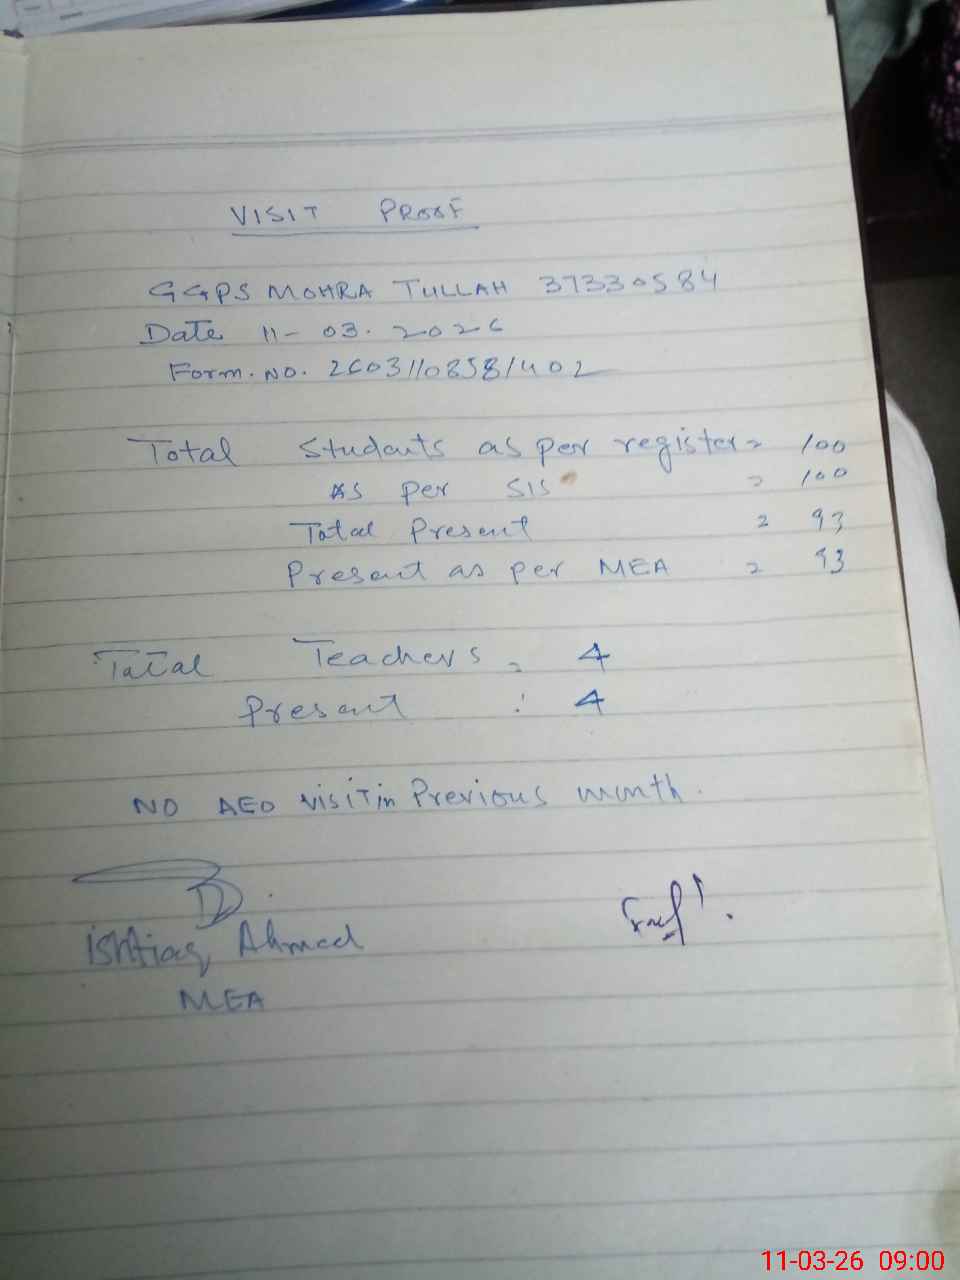 VISIT PROOF
GGPS MOHRA TULLAH 37330584
Date 11-03.2026
Form.NO. 26031108581402
Total Students as per register = 100
As per SIS = 100
Total Present = 93
Present as per MEA = 93
Total Teachers = 4
Present : 4
NO AEO visit in Previous month.
ishtiaq Ahmed
MEA
11-03-26 09:00